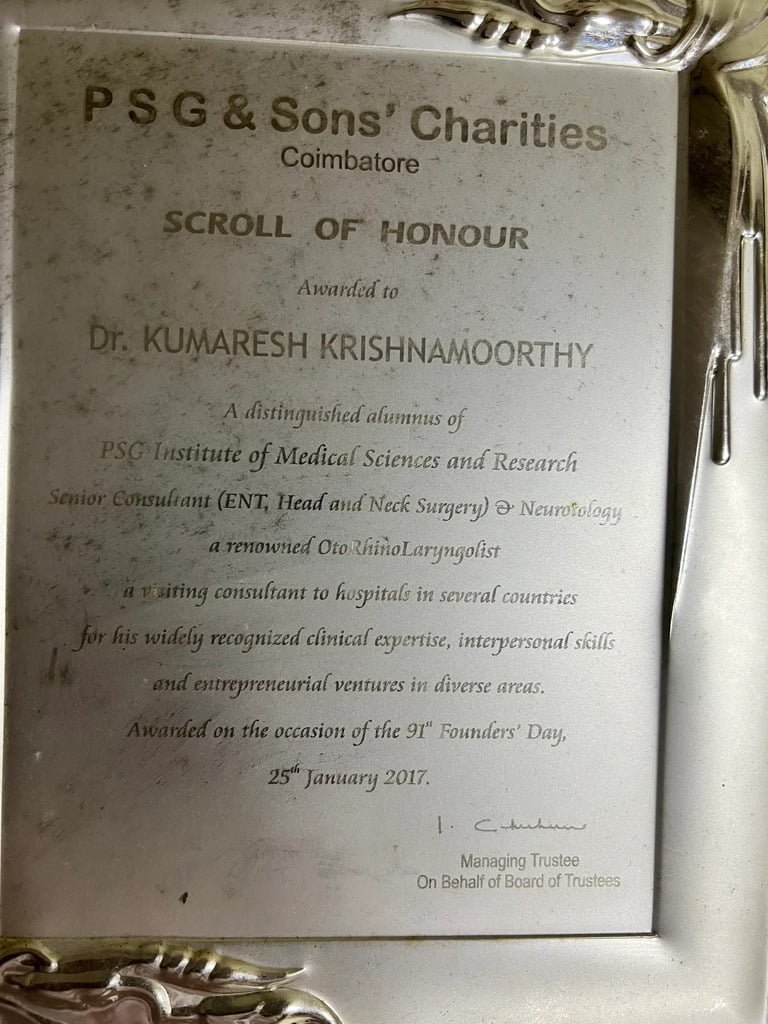 P S G & Sons' Charities
Coimbatore
SCROLL OF HONOUR
Awarded to
Dr. KUMARESH KRISHNAMOORTHY
A distinguished alumnus of
PSG Institute of Medical Sciences and Research
Senior Consultant (ENT, Head and Neck Surgery) & Neurotology
a renowned OtoRhinoLaryngolist
a visiting consultant to hospitals in several countries
for his widely recognized clinical expertise, interpersonal skills
and entrepreneurial ventures in diverse areas.
Awarded on the occasion of the 91st Founders' Day,
25th January 2017.
Managing Trustee
On Behalf of Board of Trustees